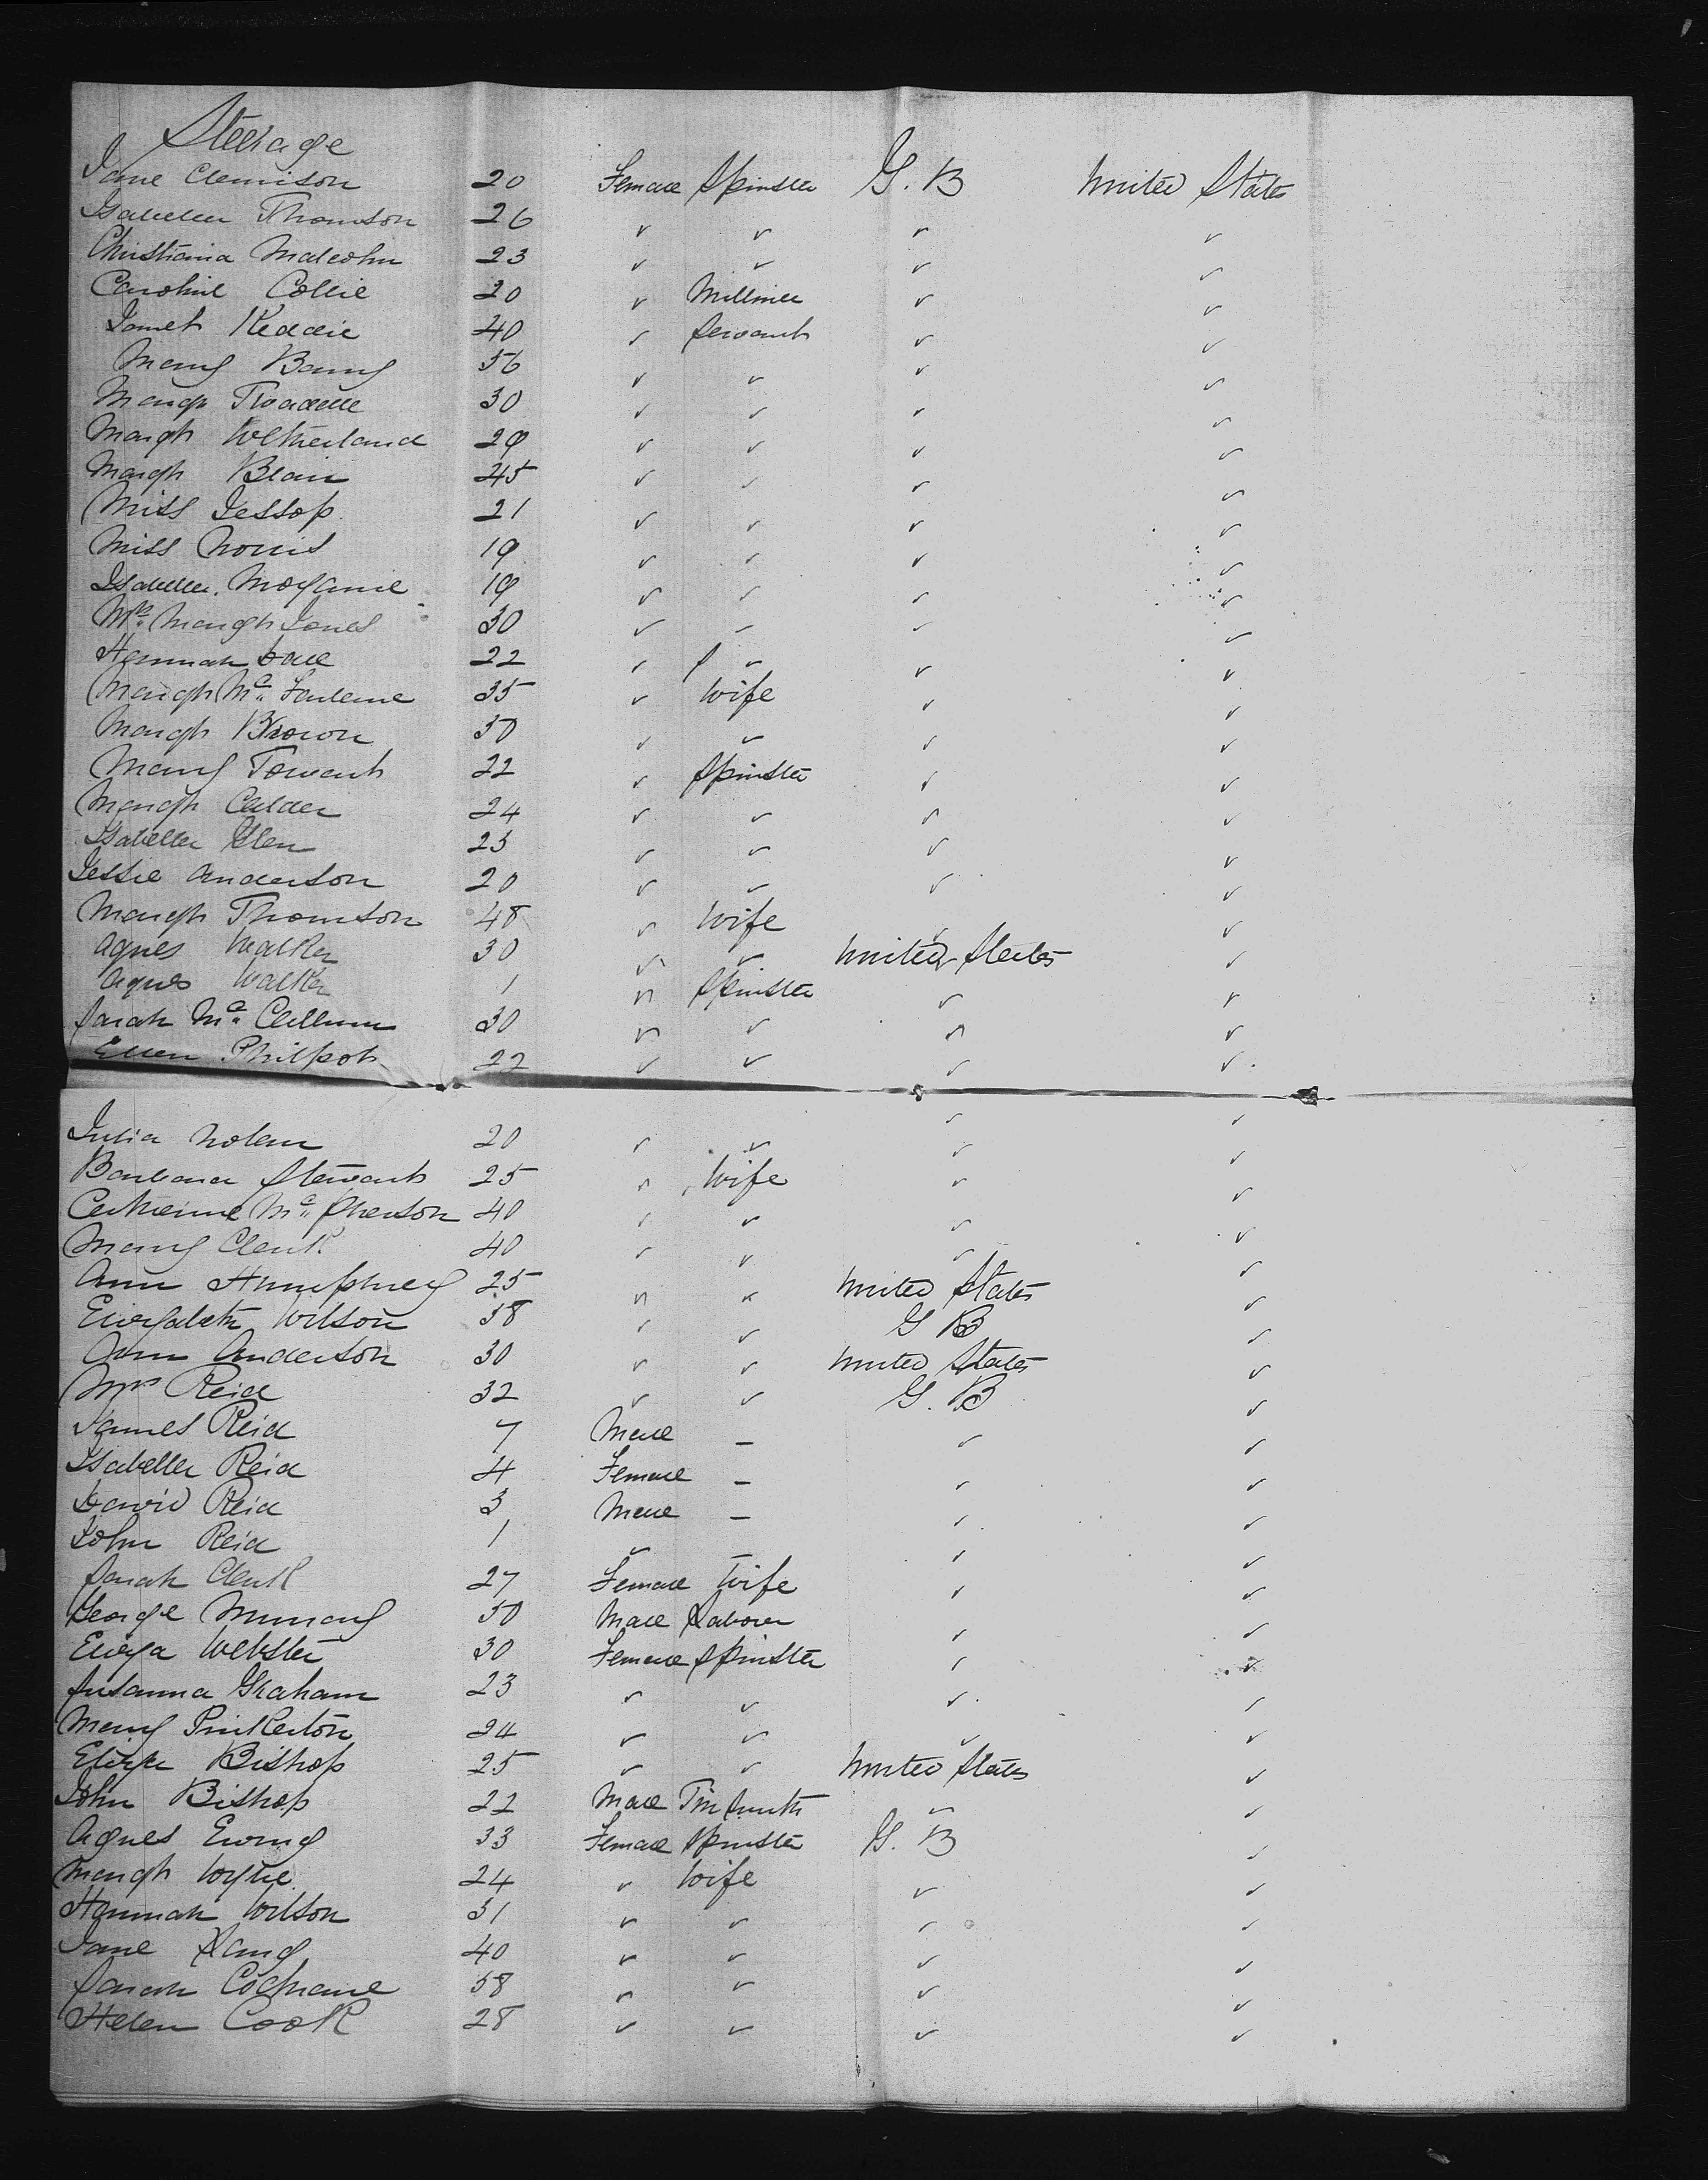 Steerage
Jane Clemison 20 Female Spinster G. B United States
Isabella Thomson 26 " " " "
Christiana Malcolm 23 " " " "
Caroline Collie 20 " Milliner " "
Janet Keddie 40 " Servant " "
Mary Barry 56 " " " "
Margt 30 " " " "
Margt 29 " " " "
Margt Blair 45 " " " "
Miss Jessop. 21 " " " "
Miss Norris 19 " " " "
Isabella 19 " " " "
Mrs. Margt Jones 30 " " " "
Hannah 22 " " " "
Margt Mc. Farlane 35 " Wife " "
Margt Brown 30 " " " "
Mary Towart 22 " Spinster " "
Margt Calder 24 " " " "
Isabella Glen 23 " " " "
Jessie Anderson 20 " " " "
Margt Thomson 48 " Wife " "
Agnes Walker 30 " " United States "
Agnes Walker 1 " Spinster " "
Sarah Mc. Callum 30 " " " "
Ellen Philpot 22 " " " "
Julia Nolan 20 " " " "
Barbara Stewart 25 " Wife " "
Catherine Mc. Pherson 40 " " " "
Mary Clark 40 " " " "
Ann Humphrey 25 " " United States "
Elizabeth Wilson 38 " " G B "
Ann Anderson 30 " " United States "
Mrs Reid 32 " " G. B "
James Reid 7 Male - " "
Isabella Reid 4 Female - " "
David Reid 3 Male - " "
John Reid 1 " - " "
Sarah Clark 27 Female Wife " "
George Murray 50 Male Laborer " "
Eliza Webster 30 Female Spinster " "
Susanna Graham 23 " " " "
Mary Pinkerton 24 " " " "
Eliza Bishop 25 " " United States "
John Bishop 22 Male Tin Smith " "
Agnes Ewing 33 Female Spinster G. B "
Margt Wylie 24 " Wife " "
Hannah Wilson 31 " " " "
Jane Lang 40 " " " "
Sarah Cochrane 58 " " " "
Helen Cook 28 " " " "